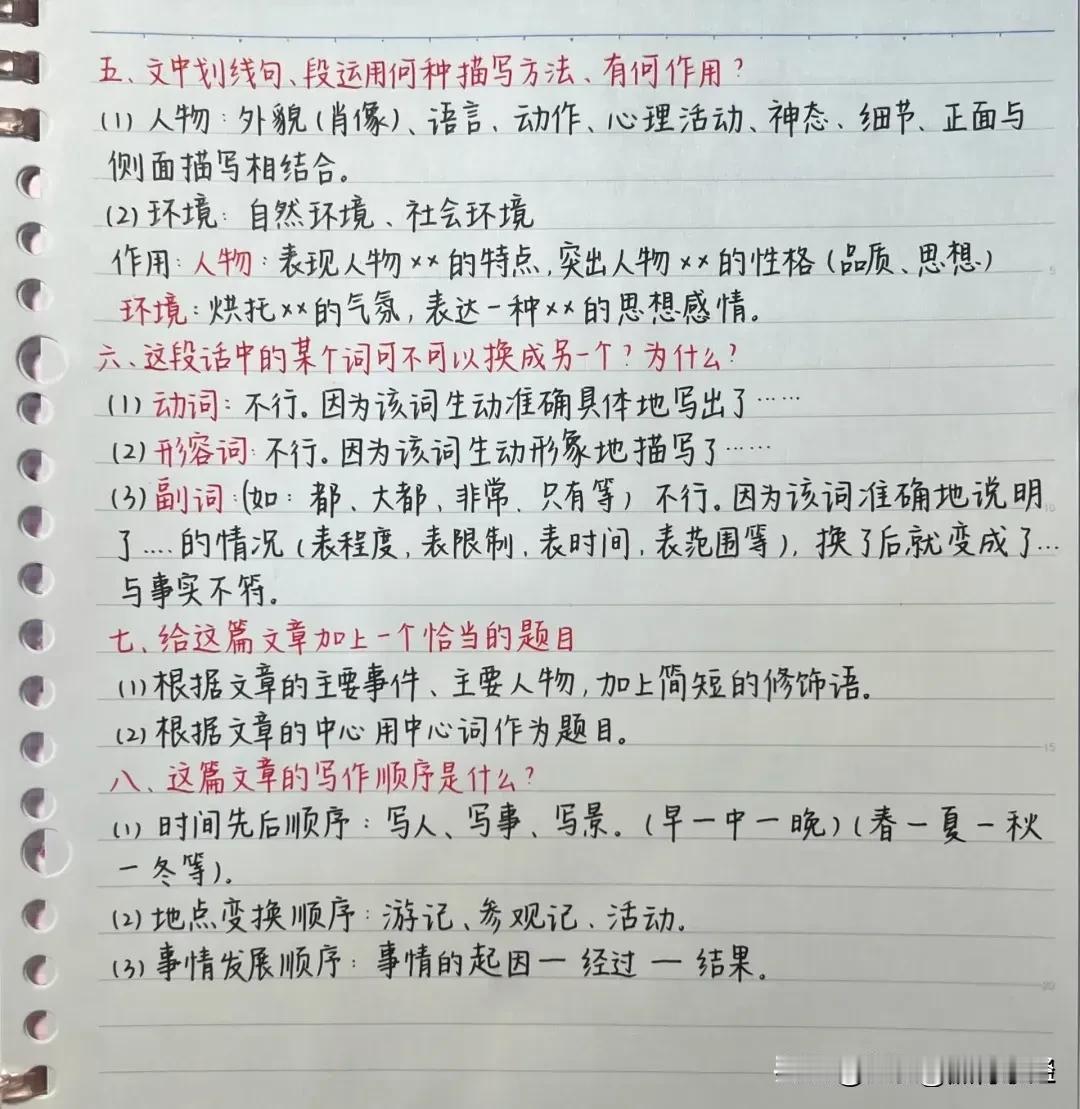 五、文中划线句、段运用何种描写方法、有何作用?
(1) 人物:外貌(肖像)、语言、动作、心理活动、神态、细节、正面与
侧面描写相结合。
(2) 环境:自然环境、社会环境
作用:人物:表现人物××的特点,突出人物××的性格(品质、思想)
环境:烘托××的气氛,表达一种××的思想感情。
六、这段话中的某个词可不可以换成另一个?为什么?
(1) 动词:不行。因为该词生动准确具体地写出了……
(2) 形容词:不行。因为该词生动形象地描写了……
(3) 副词:(如:都、大都、非常、只有等) 不行。因为该词准确地说明
了....的情况(表程度,表限制,表时间,表范围等),换了后就变成了…
与事实不符。
七、给这篇文章加上一个恰当的题目
(1) 根据文章的主要事件、主要人物,加上简短的修饰语。
(2) 根据文章的中心用中心词作为题目。
八、这篇文章的写作顺序是什么?
(1) 时间先后顺序:写人、写事、写景。(早一中一晚)(春一夏一秋
一冬等)。
(2) 地点变换顺序:游记、参观记、活动。
(3) 事情发展顺序:事情的起因一经过一结果。
5
10
15
20